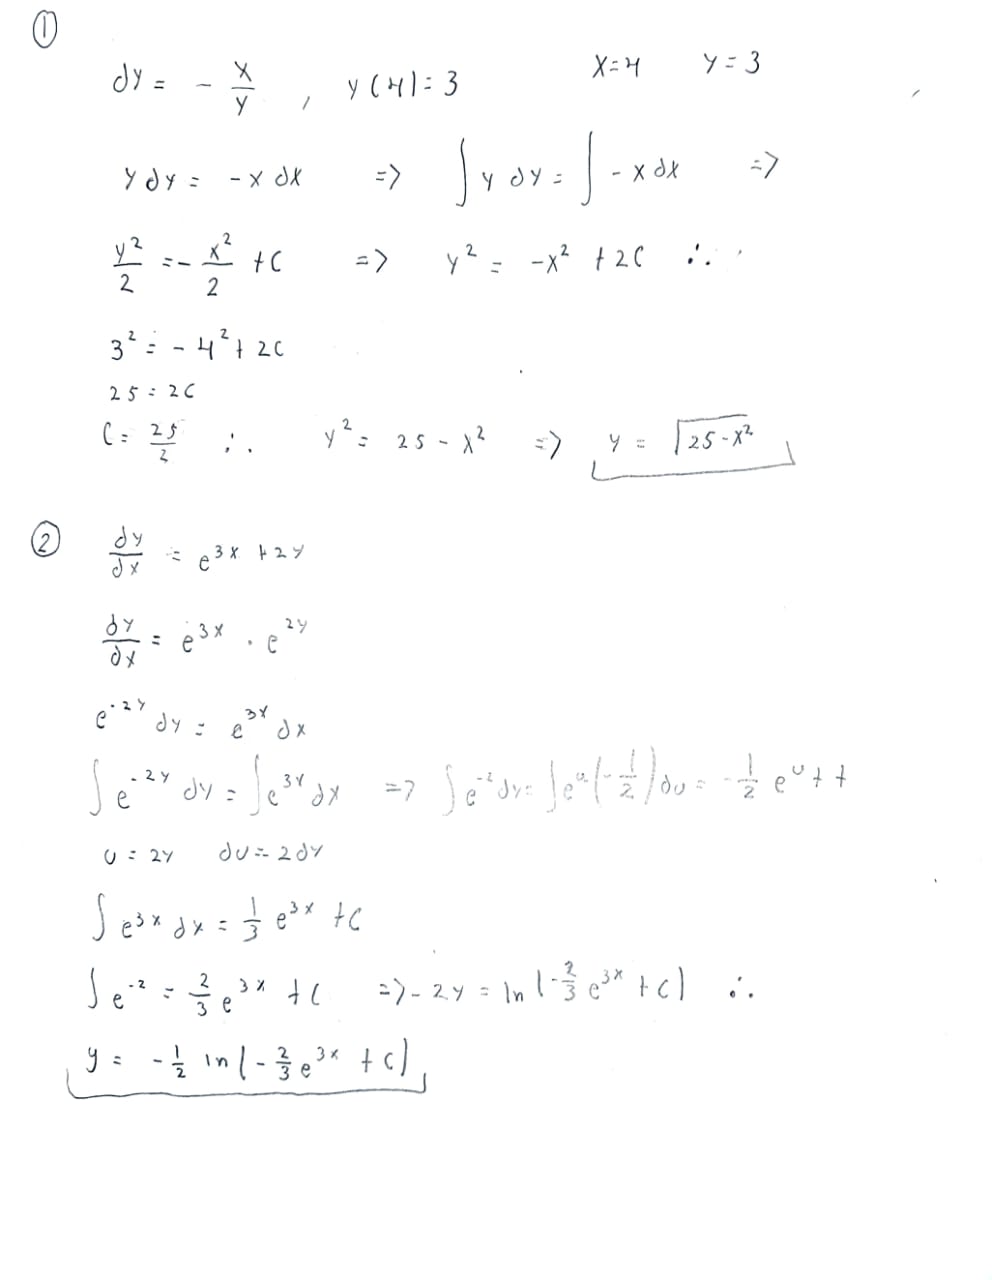 ①
dy = - x/y , y(4) = 3 x=4 y=3
y dy = -x dx => ∫ y dy = ∫ -x dx =>
y²/2 = - x²/2 + C => y² = -x² + 2C ∴
3² = -4² + 2C
25 = 2C
C = 25/2 ∴ y² = 25 - x² => y = √25-x²
② dy/dx = e^3x + 2y
dy/dx = e^3x · e^2y
e^-2y dy = e^3x dx
∫ e^-2y dy = ∫ e^3x dx => ∫ e^-2 dy = ∫ e^u (-1/2) du = -1/2 e^u + t
u = 2y du = 2dy
∫ e^3x dx = 1/3 e^3x + C
∫ e^-2 = 2/3 e^3x + C => -2y = ln(-2/3 e^3x + C) ∴
y = -1/2 ln(-2/3 e^3x + C)